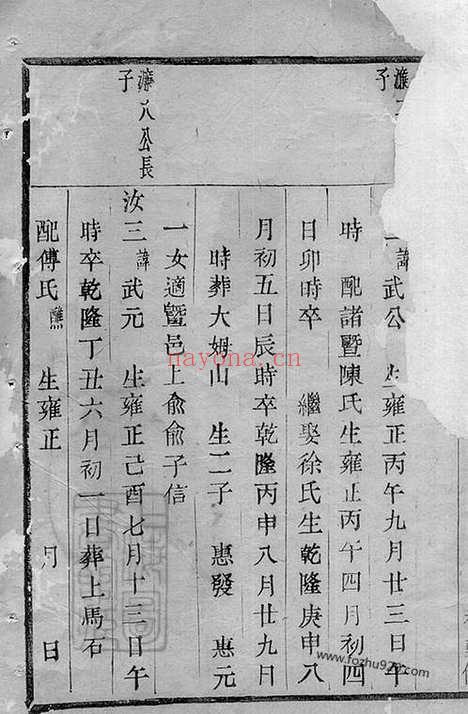 濂
子
諱武公 生雍正丙午九月廿三日午
時 配諸暨陳氏生雍正丙午四月初四
日卯時卒 繼娶徐氏生乾隆庚申八
月初五日辰時卒乾隆丙申八月廿九日
時葬大姆山 生二子 惠發 惠元
一女適暨邑上俞俞子信
濂八公長
子
汝三諱武元 生雍正己酉七月十三日午
時卒乾隆丁丑六月初一日葬上馬石
配傅氏 生雍正 月 日
nayona.cn
www.fozhu920.com